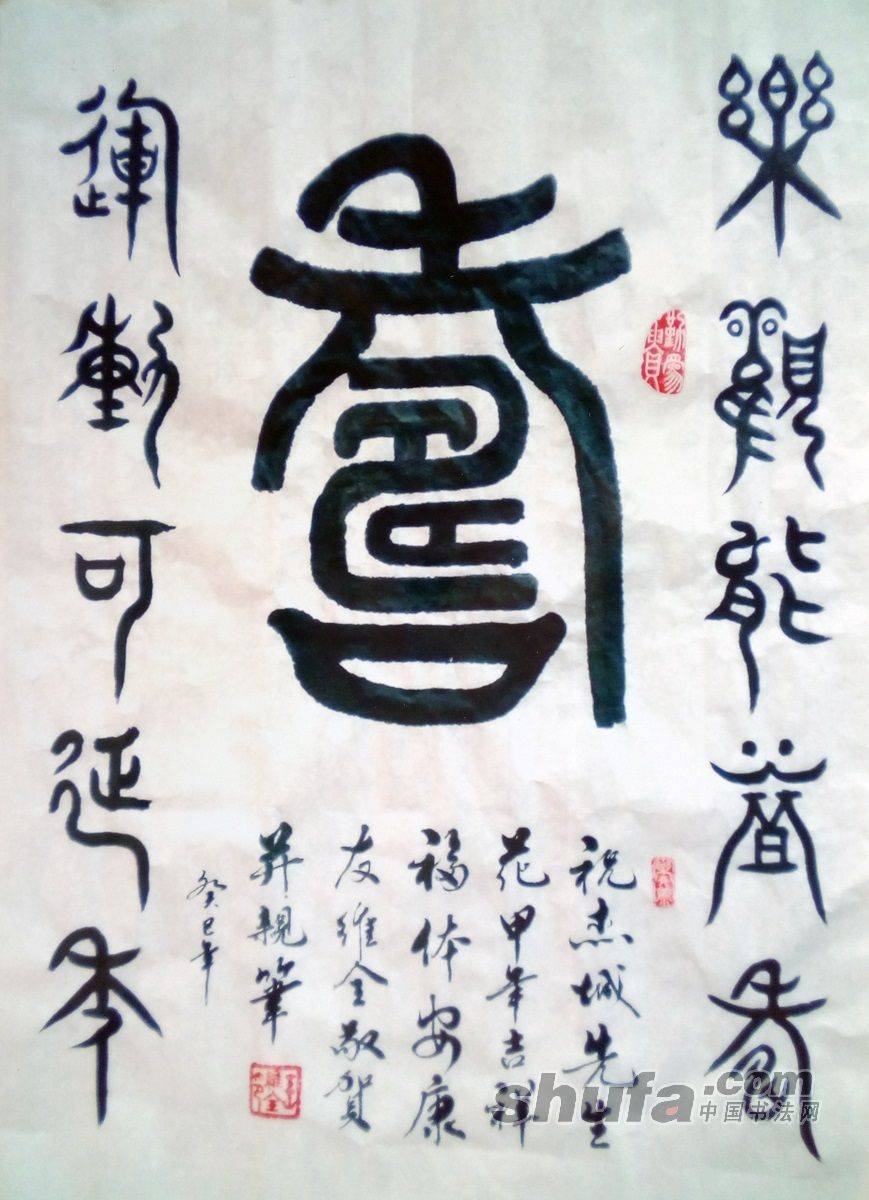 樂觀能益壽
勤為貴
壽
運動可延年
祝杰城先生
花甲年吉祥
福体安康
友維全敬賀
并親筆
癸巳年
shufa.com
中国书法网